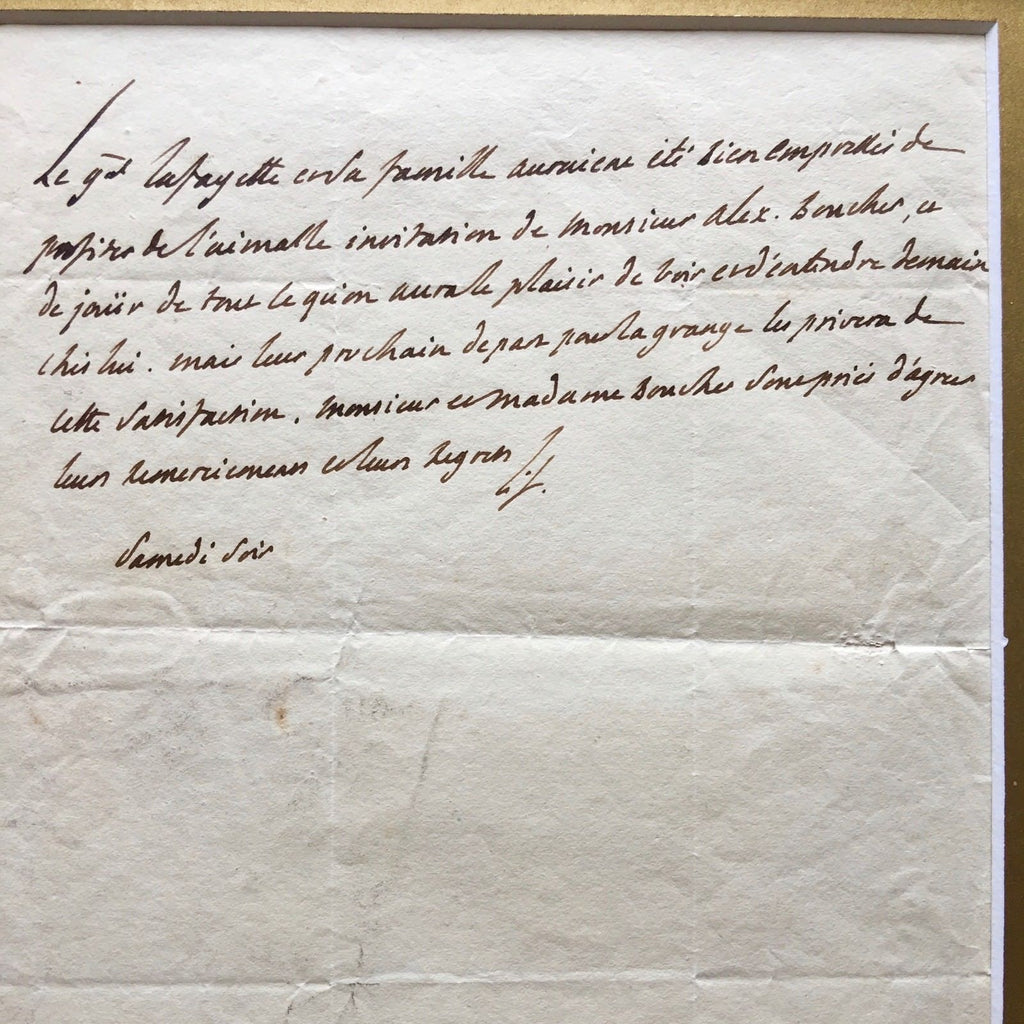 Le gal lafayette et sa famille auraient été bien empressés de
profiter de l'aimable invitation de Monsieur Alex. Boucher, et
de joüir de tout ce qu'on aura le plaisir de voir et d'entendre demain
chés lui. mais leur prochain depart pour la grange les privera de
cette satisfaction. Monsieur et Madame Boucher sont priés d'agréer
leurs remerciements et leurs regrets
samedi soir